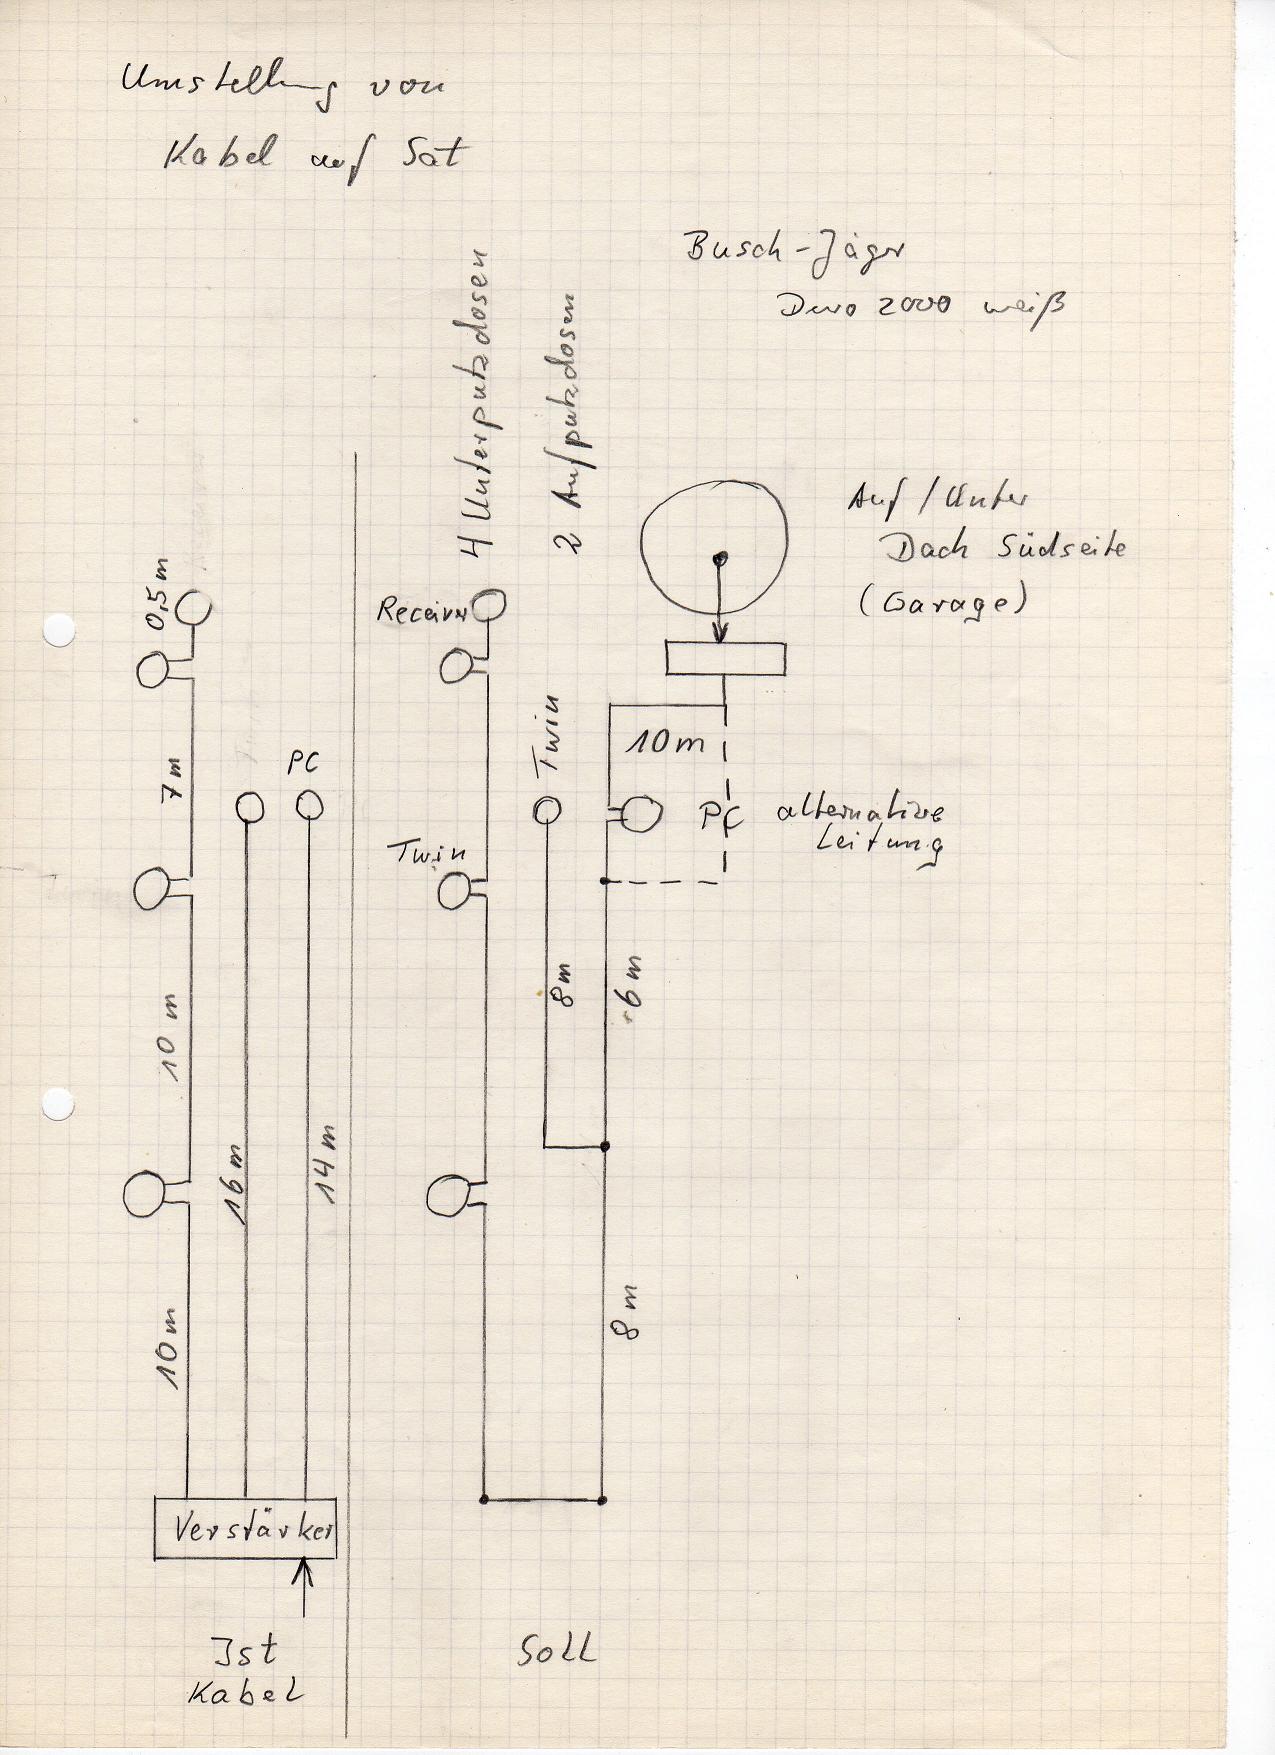 Umstellung von
Kabel auf Sat
Busch-Jäger
Duro 2000 weiß
4 Unterputzdosen
2 Aufputzdosen
Auf / Unter
Dach Südseite
(Garage)
0,5 m
Receiver
7 m
PC
Twin
10 m
Twin
PC
alternative
Leitung
10 m
8 m
6 m
16 m
14 m
10 m
8 m
Verstärker
Ist
Kabel
Soll